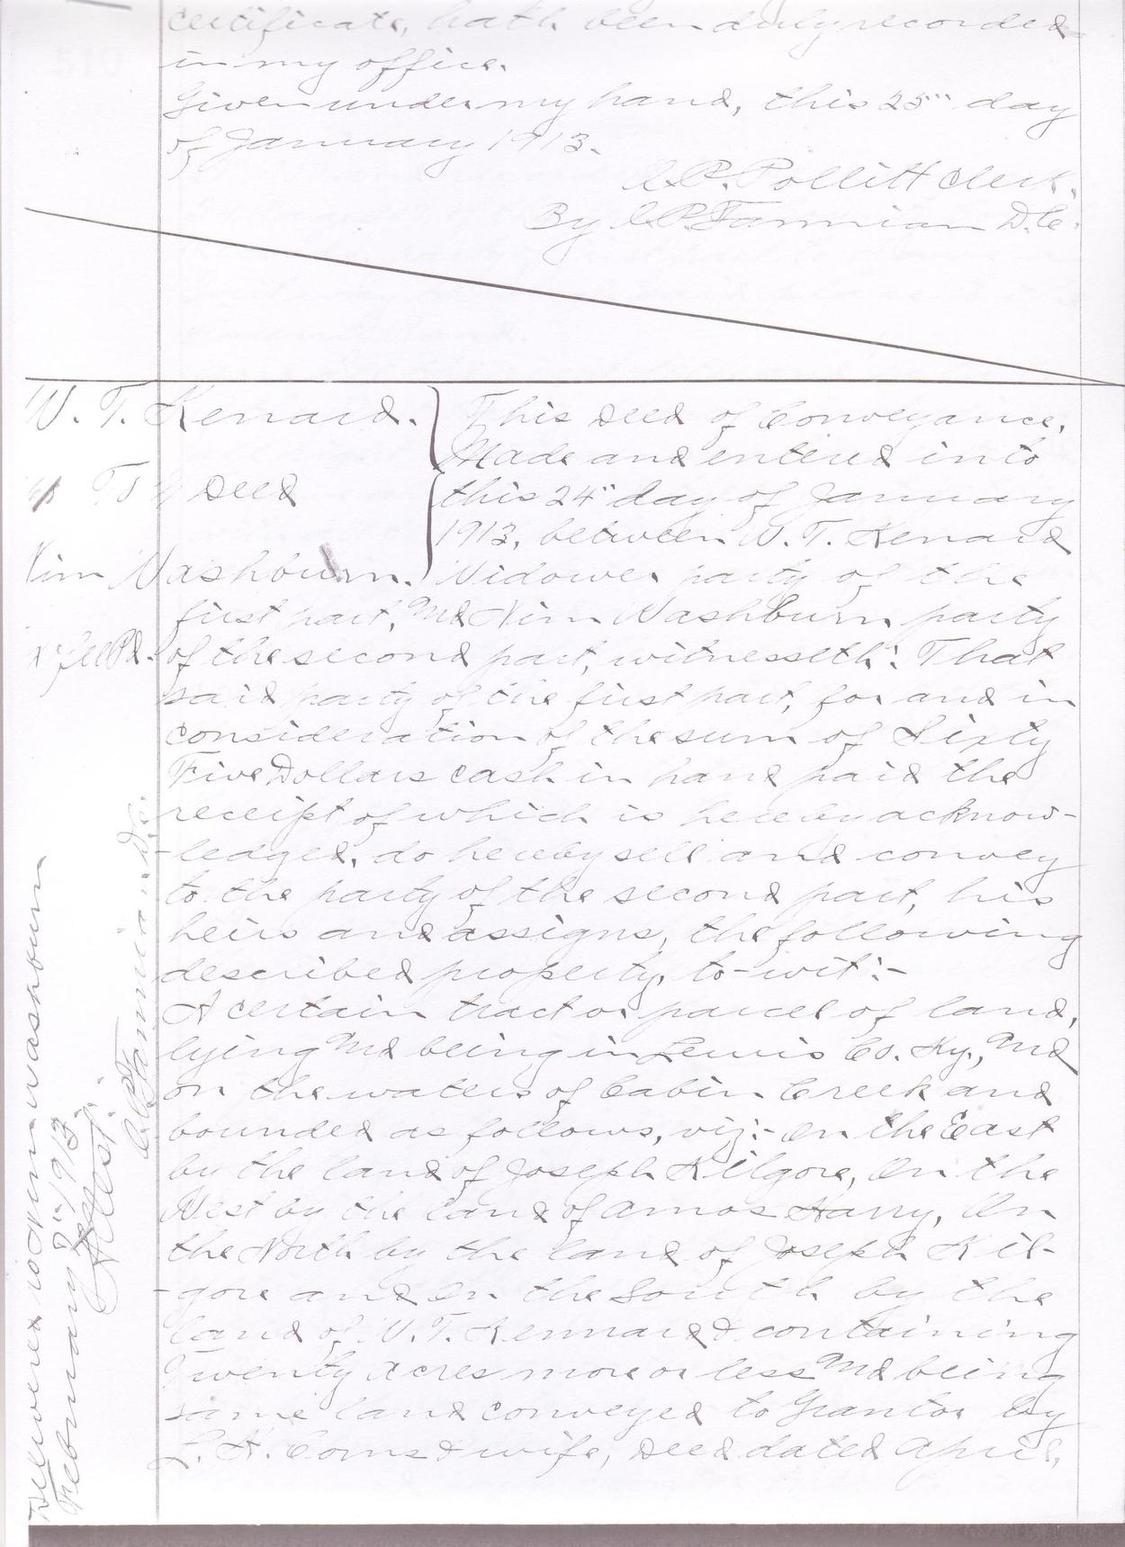 certificate, hath been duly recorded
in my office.
Given under my hand, this 25"" day
of January 1913.
Pollitt Clerk.
By D.C.
W. T. Kenard.
To Deed
Nim Washburn.
This Deed of Conveyance,
Made and entered into
this 24" day of January
1913, between W. T. Kenard
Widower party of the
first part, and Nim Washburn party
of the second part, witnesseth: That
said party of the first part, for and in
consideration of the sum of Sixty
Five Dollars cash in hand paid the
receipt of which is hereby acknow-
-ledged, do hereby sell and convey
to the party of the second part, his
heirs and assigns, the following
described property, to-wit:-
A certain tract or parcel of land,
lying and being in Lewis Co. Ky., and
on the waters of Cabin Creek and
bounded as follows, viz:- On the East
by the land of Joseph Kilgore, On the
West by the land of Amos Harry, On
the North by the land of Joseph Kil-
-gore and On the South by the
land of W. T. Kennard & containing
Twenty acres more or less and being
same land conveyed to Grantor by
L. H. & wife, Deed dated April,
Delivered to Nim Washburn
February 1913.
Attest:
D.C.